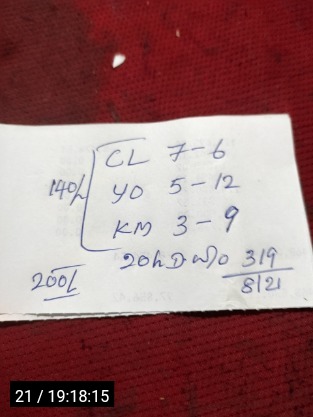 CL 7-6
140/- YO 5-12
KM 3-9
20h D W/O 319
200/- 8/21
21 / 19:18:15